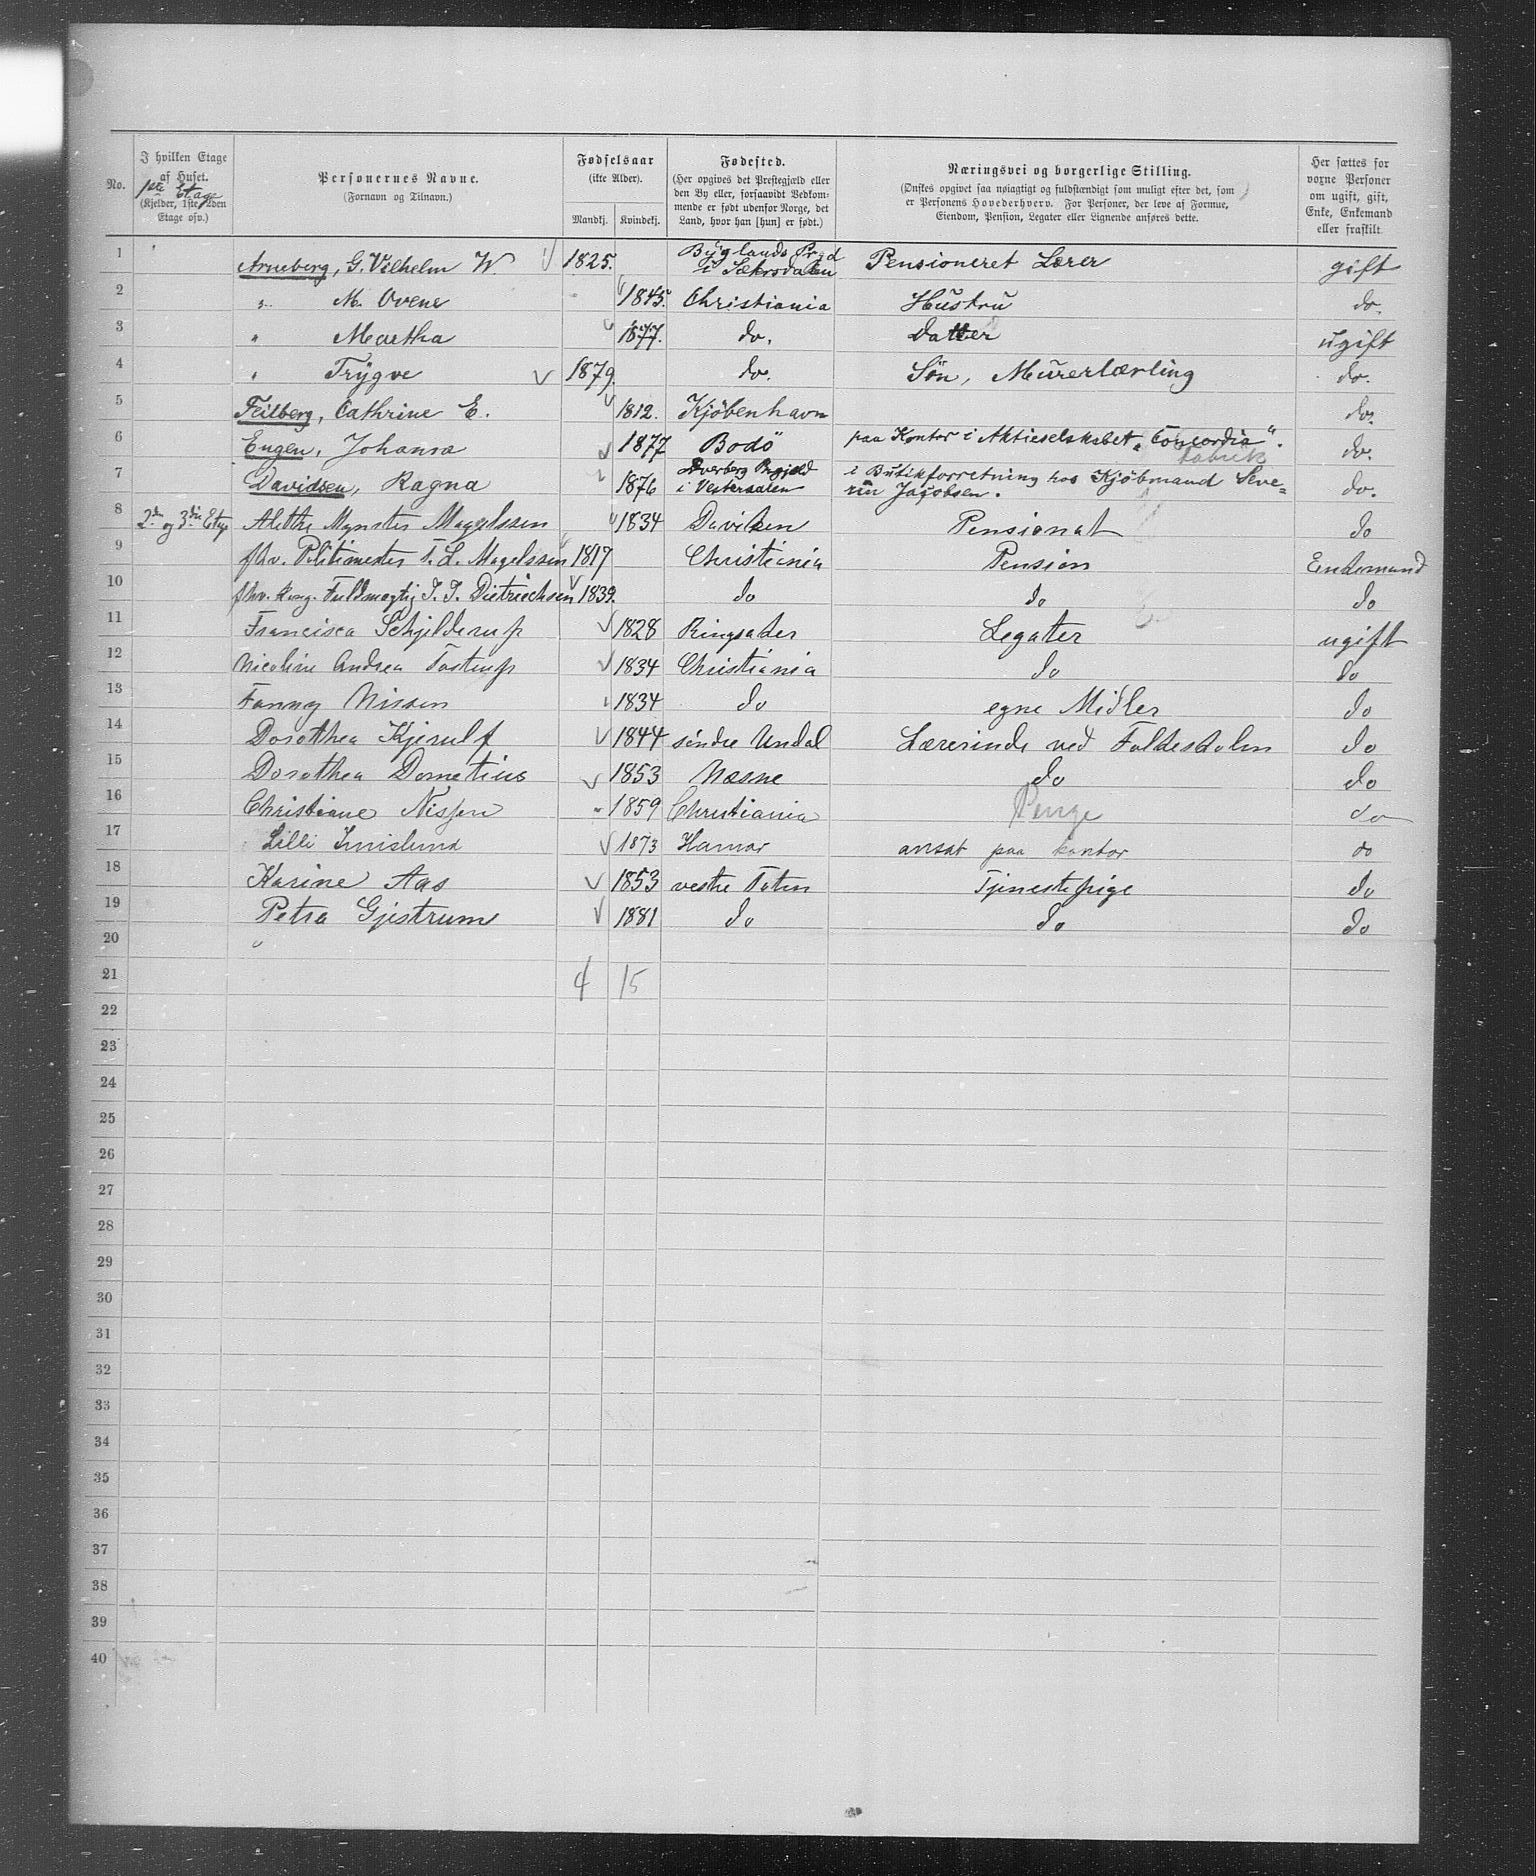 No.
I hvilken Etage
af Huset.
1ste Etage
(Kjelder, 1ste, 2den
Etage osv.)
Personernes Navne.
(Fornavn og Tilnavn.)
Fødselsaar
(ikke Alder).
Mandkj. Kvindekj.
Fødested.
(Her opgives det Prestegjæld eller
den By eller, forsaavidt Vedkom-
mende er født udenfor Norge, det
Land, hvor han [hun] er født.)
Næringsvei og borgerlige Stilling.
(Ønskes opgivet saa nøiagtigt og fuldstændigt som muligt efter det, som
er Personens Hovederhverv. For Personer, der leve af Formue,
Eiendom, Pension, Legater eller Lignende anføres dette.
Her sættes for
voxne Personer
om ugift, gift,
Enke, Enkemand
eller fraskilt.
1 Arneberg, G. Vilhelm W. 1825. Byglands Prgd i Sætersdalen Pensioneret Lærer gift
2 " M. Ovene 1845. Christiania Hustru do.
3 " Martha 1877. do. Datter ugift
4 " Trygve 1879. do. Søn, Murerlærling do.
5 Feilberg, Cathrine E. 1812. Kjöbenhavn do.
6 Engen, Johanna 1877 Bodö paa Kontor i Aktieselskabet "Concordia". fabrik do.
7 Davidsen, Ragna 1876 Prgjeld i Vesteraalen i Butikforretning hos Kjöbmand Seve=
rin Jacobsen. do.
8 2den og 3die Etage Alethe Mynster Magelssen 1834 Daviken Pensionat do
9 fhv. Politimester F. L. Magelssen 1817 Christiania Pension Enkemand
10 fhv. Kong. Fuldmægtig J. J. Dietrichsen 1839. do do do
11 Francisca Schjelderup 1828 Ringsaker Legater ugift
12 Nicoline Andrea Tostrup 1834 Christiania do do
13 Fanny Nissen 1834 do egne Midler do
14 Dorothea Kjerulf 1844 söndre Undal Lærerinde ved Foldesdolen do
15 Dorothea Dometius 1853 Næsne do do
16 Christiane Nissen 1859 Christiania Penge do
17 Lilli Imislund 1873 Hamar ansat paa kontor do
18 Karine Aas 1853 vestre Toten Tjenestepige do
19 Petra Gjestrum 1881 do do do
20 "
21 4 15
22
23
24
25
26
27
28
29
30
31
32
33
34
35
36
37
38
39
40